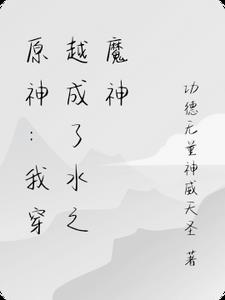 原神：我穿
越成了水之
魔神
功德无量神威天圣 著